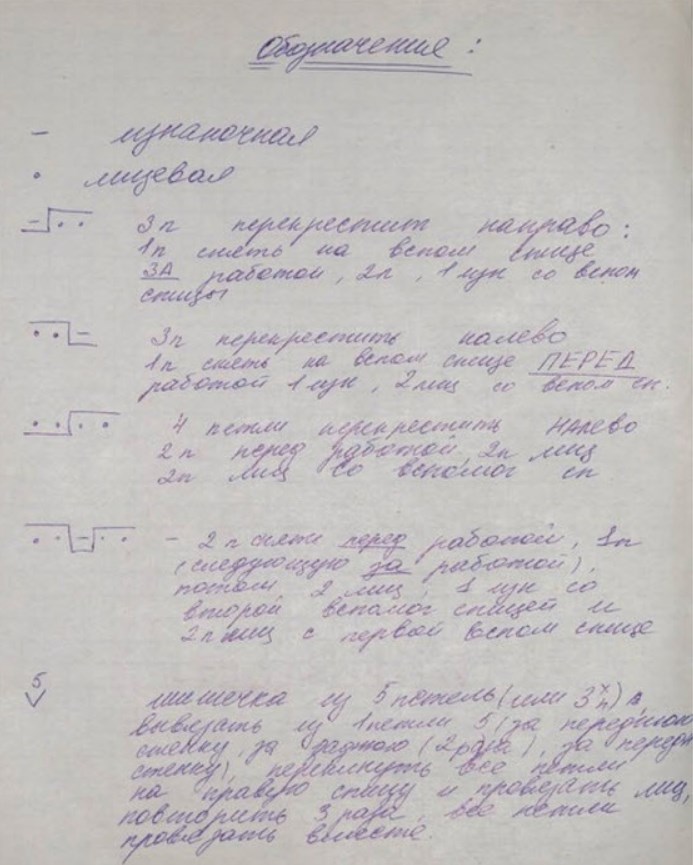 Обозначения:
– изнаночная
• лицевая
3п перекрестить направо:
1п снять на вспом спице
ЗА работой, 2л, 1 изн со вспом
спицы
3п перекрестить налево
1п снять на вспом спице ПЕРЕД
работой 1 изн, 2 лиц со вспом сп.
4 петли перекрестить НАлево
2п перед работой, 2п лиц
2п лиц со вспомог сп
– 2п снять перед работой, 1п
(следующую за работой),
потом 2 лиц, 1 изн со
второй вспомог спицей и
2п лиц с первой вспом спице
5
шишечка из 5 петель (или 3х)
вывязать из 1 петли 5 (за переднюю
стенку, за заднюю (2 раза), за
стенку), перекинуть все петли
на правую спицу и провязать лиц,
повторить 3 раза, все петли
провязать вместе.